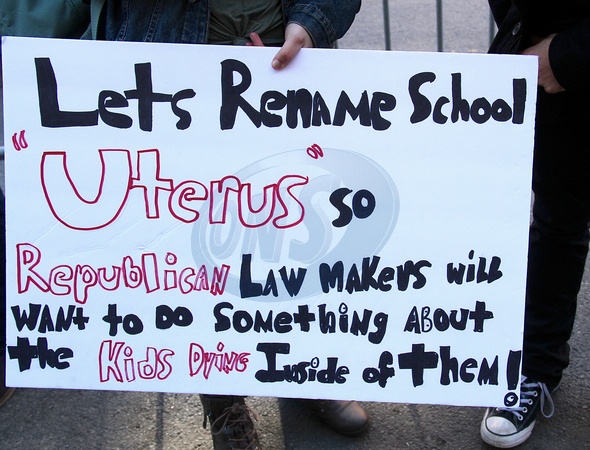 Lets Rename School
"Uterus" so
Republican Law makers will
want to do something about
the Kids Dying Inside of them!
UNS